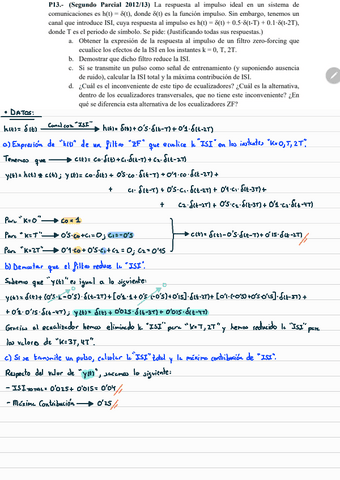 P13.- (Segundo Parcial 2012/13) La respuesta al impulso ideal en un sistema de
comunicaciones es h(t) = δ(t), donde δ(t) es la función impulso. Sin embargo, tenemos un
canal que introduce ISI, cuya respuesta al impulso es h(t) = δ(t) + 0.5·δ(t-T) + 0.1·δ(t-2T),
donde T es el periodo de símbolo. Se pide: (Justificando todas sus respuestas.)
a. Obtener la expresión de la respuesta al impulso de un filtro zero-forcing que
ecualice los efectos de la ISI en los instantes k = 0, T, 2T.
b. Demostrar que dicho filtro reduce la ISI.
c. Si se transmite un pulso como señal de entrenamiento (y suponiendo ausencia
de ruido), calcular la ISI total y la máxima contribución de ISI.
d. ¿Cuál es el inconveniente de este tipo de ecualizadores? ¿Cuál es la alternativa,
dentro de los ecualizadores transversales, que no tiene este inconveniente? ¿En
qué se diferencia esta alternativa de los ecualizadores ZF?
• DATOS:
h(t) = δ(t) Canal con "ISI" h(t) = δ(t) + 0'5·δ(t-T) + 0'1·δ(t-2T)
a) Expresión de "h(t)" de un filtro "ZF" que ecualice la "ISI" en los instantes "K=0,T,2T".
Tenemos que c(t) = c0·δ(t) + c1·δ(t-T) + c2·δ(t-2T)
y(t) = h(t) * c(t); y(t) = c0·δ(t) + 0'5·c0·δ(t-T) + 0'1·c0·δ(t-2T) +
+ c1·δ(t-T) + 0'5·c1·δ(t-2T) + 0'1·c1·δ(t-3T) +
+ c2·δ(t-2T) + 0'5·c2·δ(t-3T) + 0'1·c2·δ(t-4T)
Para "K=0" c0 = 1
Para "K=T" 0'5·c0 + c1 = 0; c1 = -0'5 c(t) = δ(t) - 0'5·δ(t-T) + 0'15·δ(t-2T)
Para "K=2T" 0'1·c0 + 0'5·c1 + c2 = 0; c2 = 0'15
b) Demostrar que el filtro reduce la "ISI".
Sabemos que "y(t)" es igual a lo siguiente:
y(t) = δ(t) + (0'5-0'5)·δ(t-T) + [0'1·1 + 0'5·(-0'5) + 0'15]·δ(t-2T) + [0'1·(-0'5) + 0'5·0'15]·δ(t-3T) +
+ 0'1·0'15·δ(t-4T); y(t) = δ(t) + 0'025·δ(t-3T) + 0'015·δ(t-4T)
Gracias al ecualizador hemos eliminado la "ISI" para "K=T,2T" y hemos reducido la "ISI" para
los valores de "K=3T,4T".
c) Si se transmite un pulso, calcular la "ISI" total y la máxima contribución de "ISI".
Respecto del valor de "y(t)", sacamos lo siguiente:
- ISI TOTAL = 0'025 + 0'015 = 0'04
- Máxima Contribución 0'25